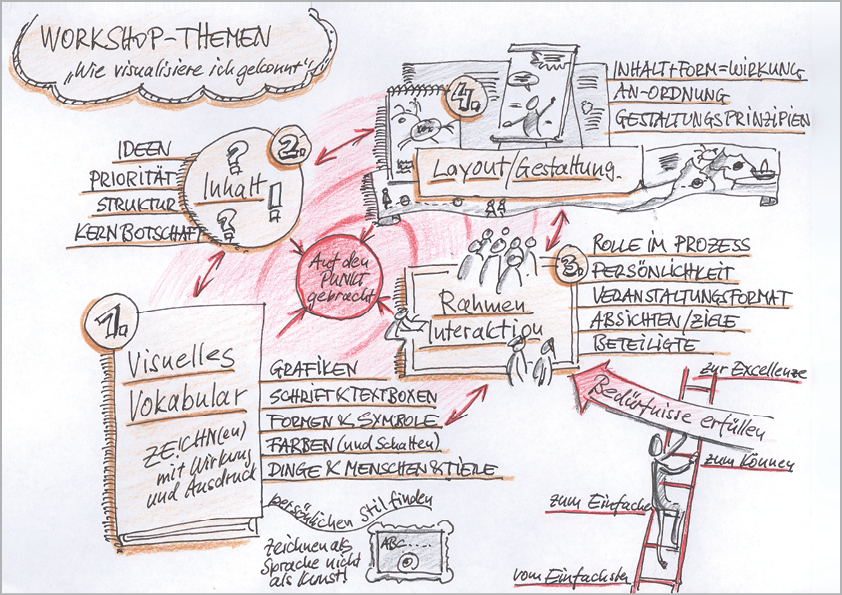 WORKSHOP-THEMEN
„Wie visualisiere ich gekonnt“
2.
Inhalt
IDEEN
PRIORITÄT
STRUKTUR
KERNBOTSCHAFT
4.
Layout/Gestaltung
INHALT+FORM=WIRKUNG
AN-ORDNUNG
GESTALTUNGSPRINZIPIEN
Auf den
PUNKT
gebracht
3.
Rahmen
Interaktion
ROLLE IM PROZESS
PERSÖNLICHKEIT
VERANSTALTUNGSFORMAT
ABSICHTEN/ZIELE
BETEILIGTE
1.
Visuelles
Vokabular
ZEICHN(en)
mit Wirkung
und Ausdruck
GRAFIKEN
SCHRIFT & TEXTBOXEN
FORMEN & SYMBOLE
FARBEN (und Schatten)
DINGE & MENSCHEN &
persönlichen Stil finden
Zeichnen als
Sprache nicht
als Kunst!
ABC
Bedürfnisse erfüllen
zur Excellenze
zum Können
zum Einfache
vom Einfachsten